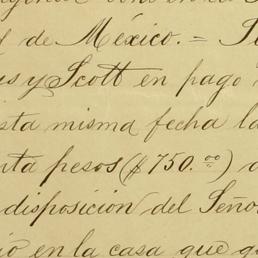 de México. =
is y Scott en pago
sta misma fecha la
nta pesos ($750.00)
disposición del Seño
ió en la casa que